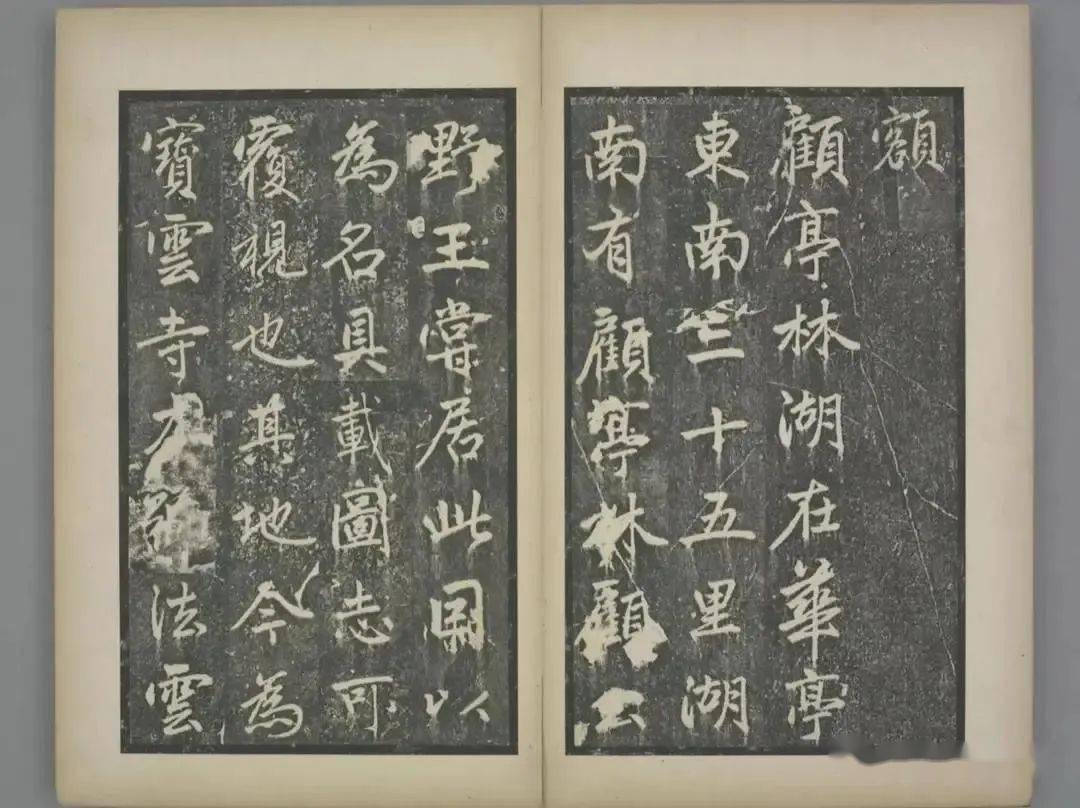 額
顧亭林湖在華亭
東南三十五里湖
南有顧亭林顧公
野王嘗居此因以
為名具載圖志可
覆視也其地今為
寶雲寺寺法雲